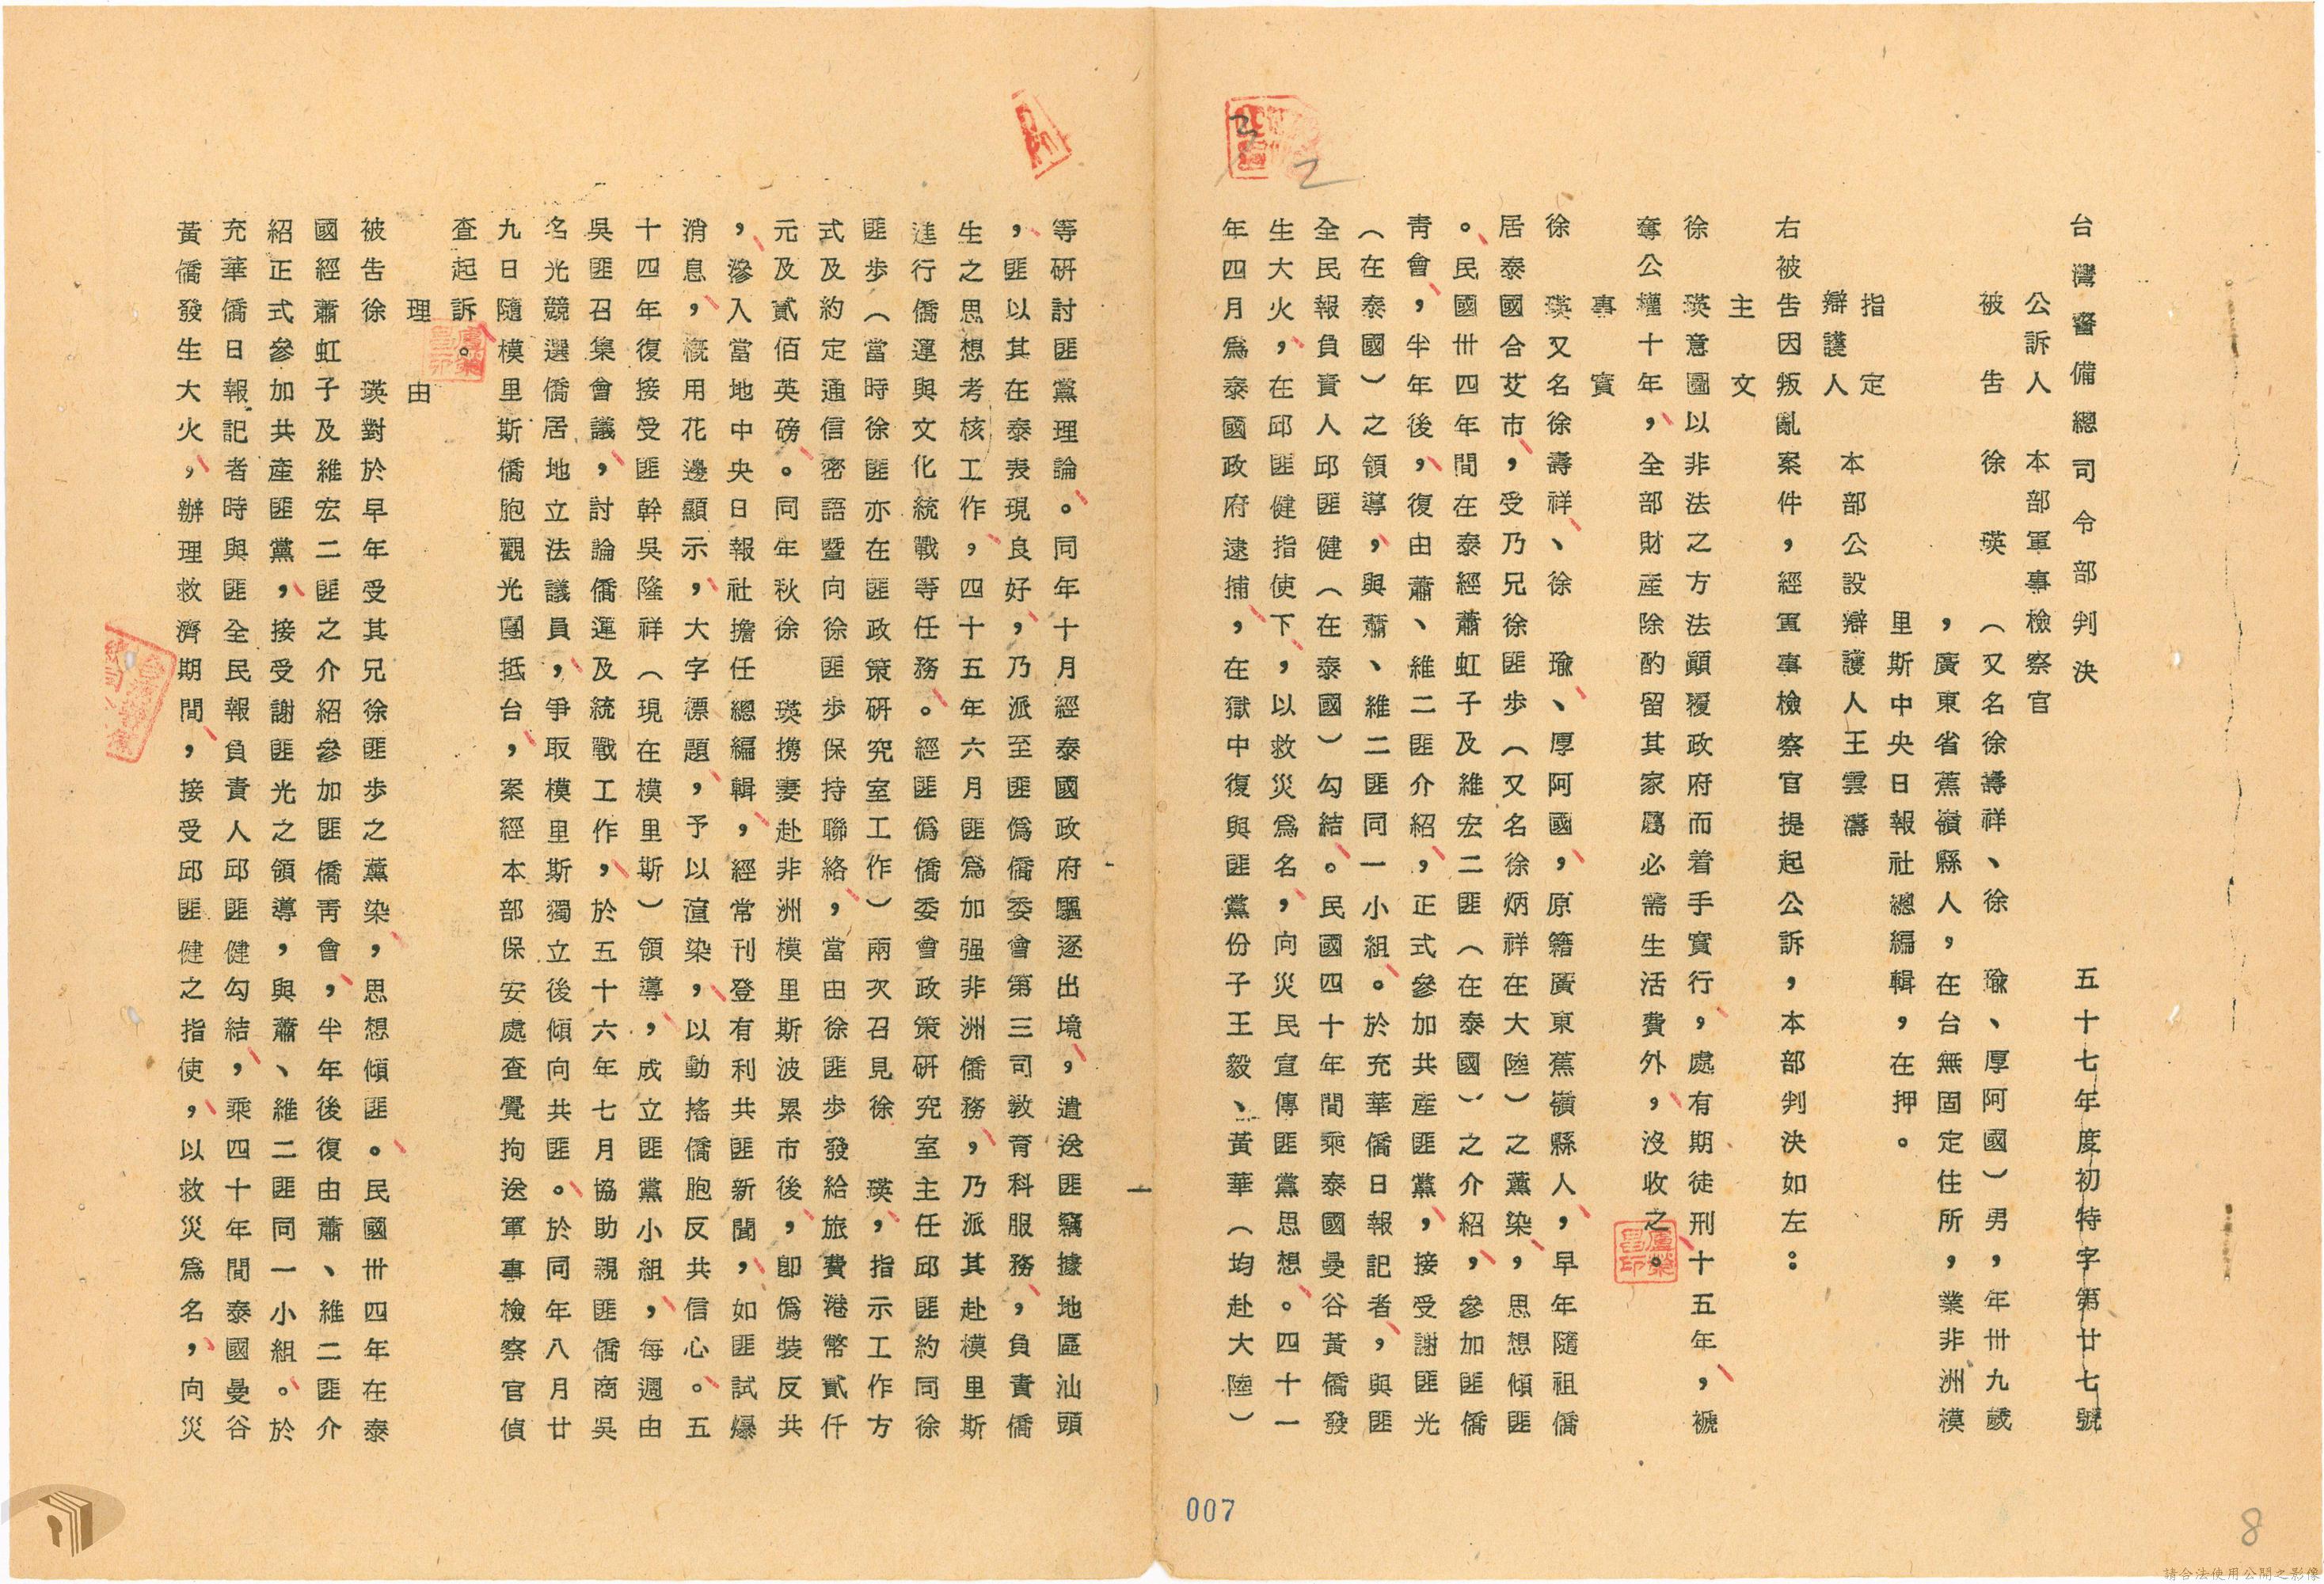 台灣警備總司令部判決　五十七年度初特字第廿七號
公訴人　本部軍事檢察官
被告　徐　瑛（又名徐壽祥、徐　瑜、厚阿國）男，年卅九歲
，廣東省蕉嶺縣人，在台無固定住所，業非洲模
里斯中央日報社總編輯，在押。
指定
辯護人　本部公設辯護人王雲濤
右被告因叛亂案件，經軍事檢察官提起公訴，本部判決如左：
主文
徐　瑛意圖以非法之方法顚覆政府而着手實行，處有期徒刑十五年，褫
奪公權十年，全部財產除酌留其家屬必需生活費外，沒收之。
事實
徐　瑛又名徐壽祥、徐　瑜、厚阿國，原籍廣東蕉嶺縣人，早年隨祖僑
居泰國合艾市，受乃兄徐匪步（又名徐炳祥在大陸）之薰染，思想傾匪
。民國卅四年間在泰經蕭虹子及維宏二匪（在泰國）之介紹，參加匪僑
靑會，半年後，復由蕭、維二匪介紹，正式參加共產匪黨，接受謝匪光
（在泰國）之領導，與蕭、維二匪同一小組。於充華僑日報記者，與匪
全民報負責人邱匪健（在泰國）勾結。民國四十年間乘泰國曼谷黃僑發
生大火，在邱匪健指使下，以救災爲名，向災民宣傳匪黨思想。四十一
年四月爲泰國政府逮捕，在獄中復與匪黨份子王毅、黃華（均赴大陸）
等硏討匪黨理論。同年十月經泰國政府驅逐出境，遣送匪竊據地區汕頭
，匪以其在泰表現良好，乃派至匪僞僑委會第三司敎育科服務，負責僑
生之思想考核工作，四十五年六月匪爲加强非洲僑務，乃派其赴模里斯
進行僑運與文化統戰等任務。經匪僞僑委會政策硏究室主任邱匪約同徐
匪步（當時徐匪亦在匪政策硏究室工作）兩次召見徐　瑛，指示工作方
式及約定通信密語曁向徐匪步保持聯絡，當由徐匪步發給旅費港幣貳仟
元及貳佰英磅。同年秋徐　瑛携妻赴非洲模里斯波累市後，卽僞裝反共
，滲入當地中央日報社擔任總編輯，經常刊登有利共匪新聞，如匪試爆
消息，槪用花邊顯示，大字標題，予以渲染，以動搖僑胞反共信心。五
十四年復接受匪幹吳隆祥（現在模里斯）領導，成立匪黨小組，每週由
吳匪召集會議，討論僑運及統戰工作，於五十六年七月協助親匪僑商吳
名光競選僑居地立法議員，爭取模里斯獨立後傾向共匪。於同年八月廿
九日隨模里斯僑胞觀光團抵台，案經本部保安處查覺拘送軍事檢察官偵
查起訴。
理由
被告徐　瑛對於早年受其兄徐匪步之薰染，思想傾匪。民國卅四年在泰
國經蕭虹子及維宏二匪之介紹參加匪僑靑會，半年後復由蕭、維二匪介
紹正式參加共產匪黨，接受謝匪光之領導，與蕭、維二匪同一小組。於
充華僑日報記者時與匪全民報負責人邱匪健勾結，乘四十年間泰國曼谷
黃僑發生大火，辦理救濟期間，接受邱匪健之指使，以救災爲名，向災
一
007
8
請合法使用公開之影像